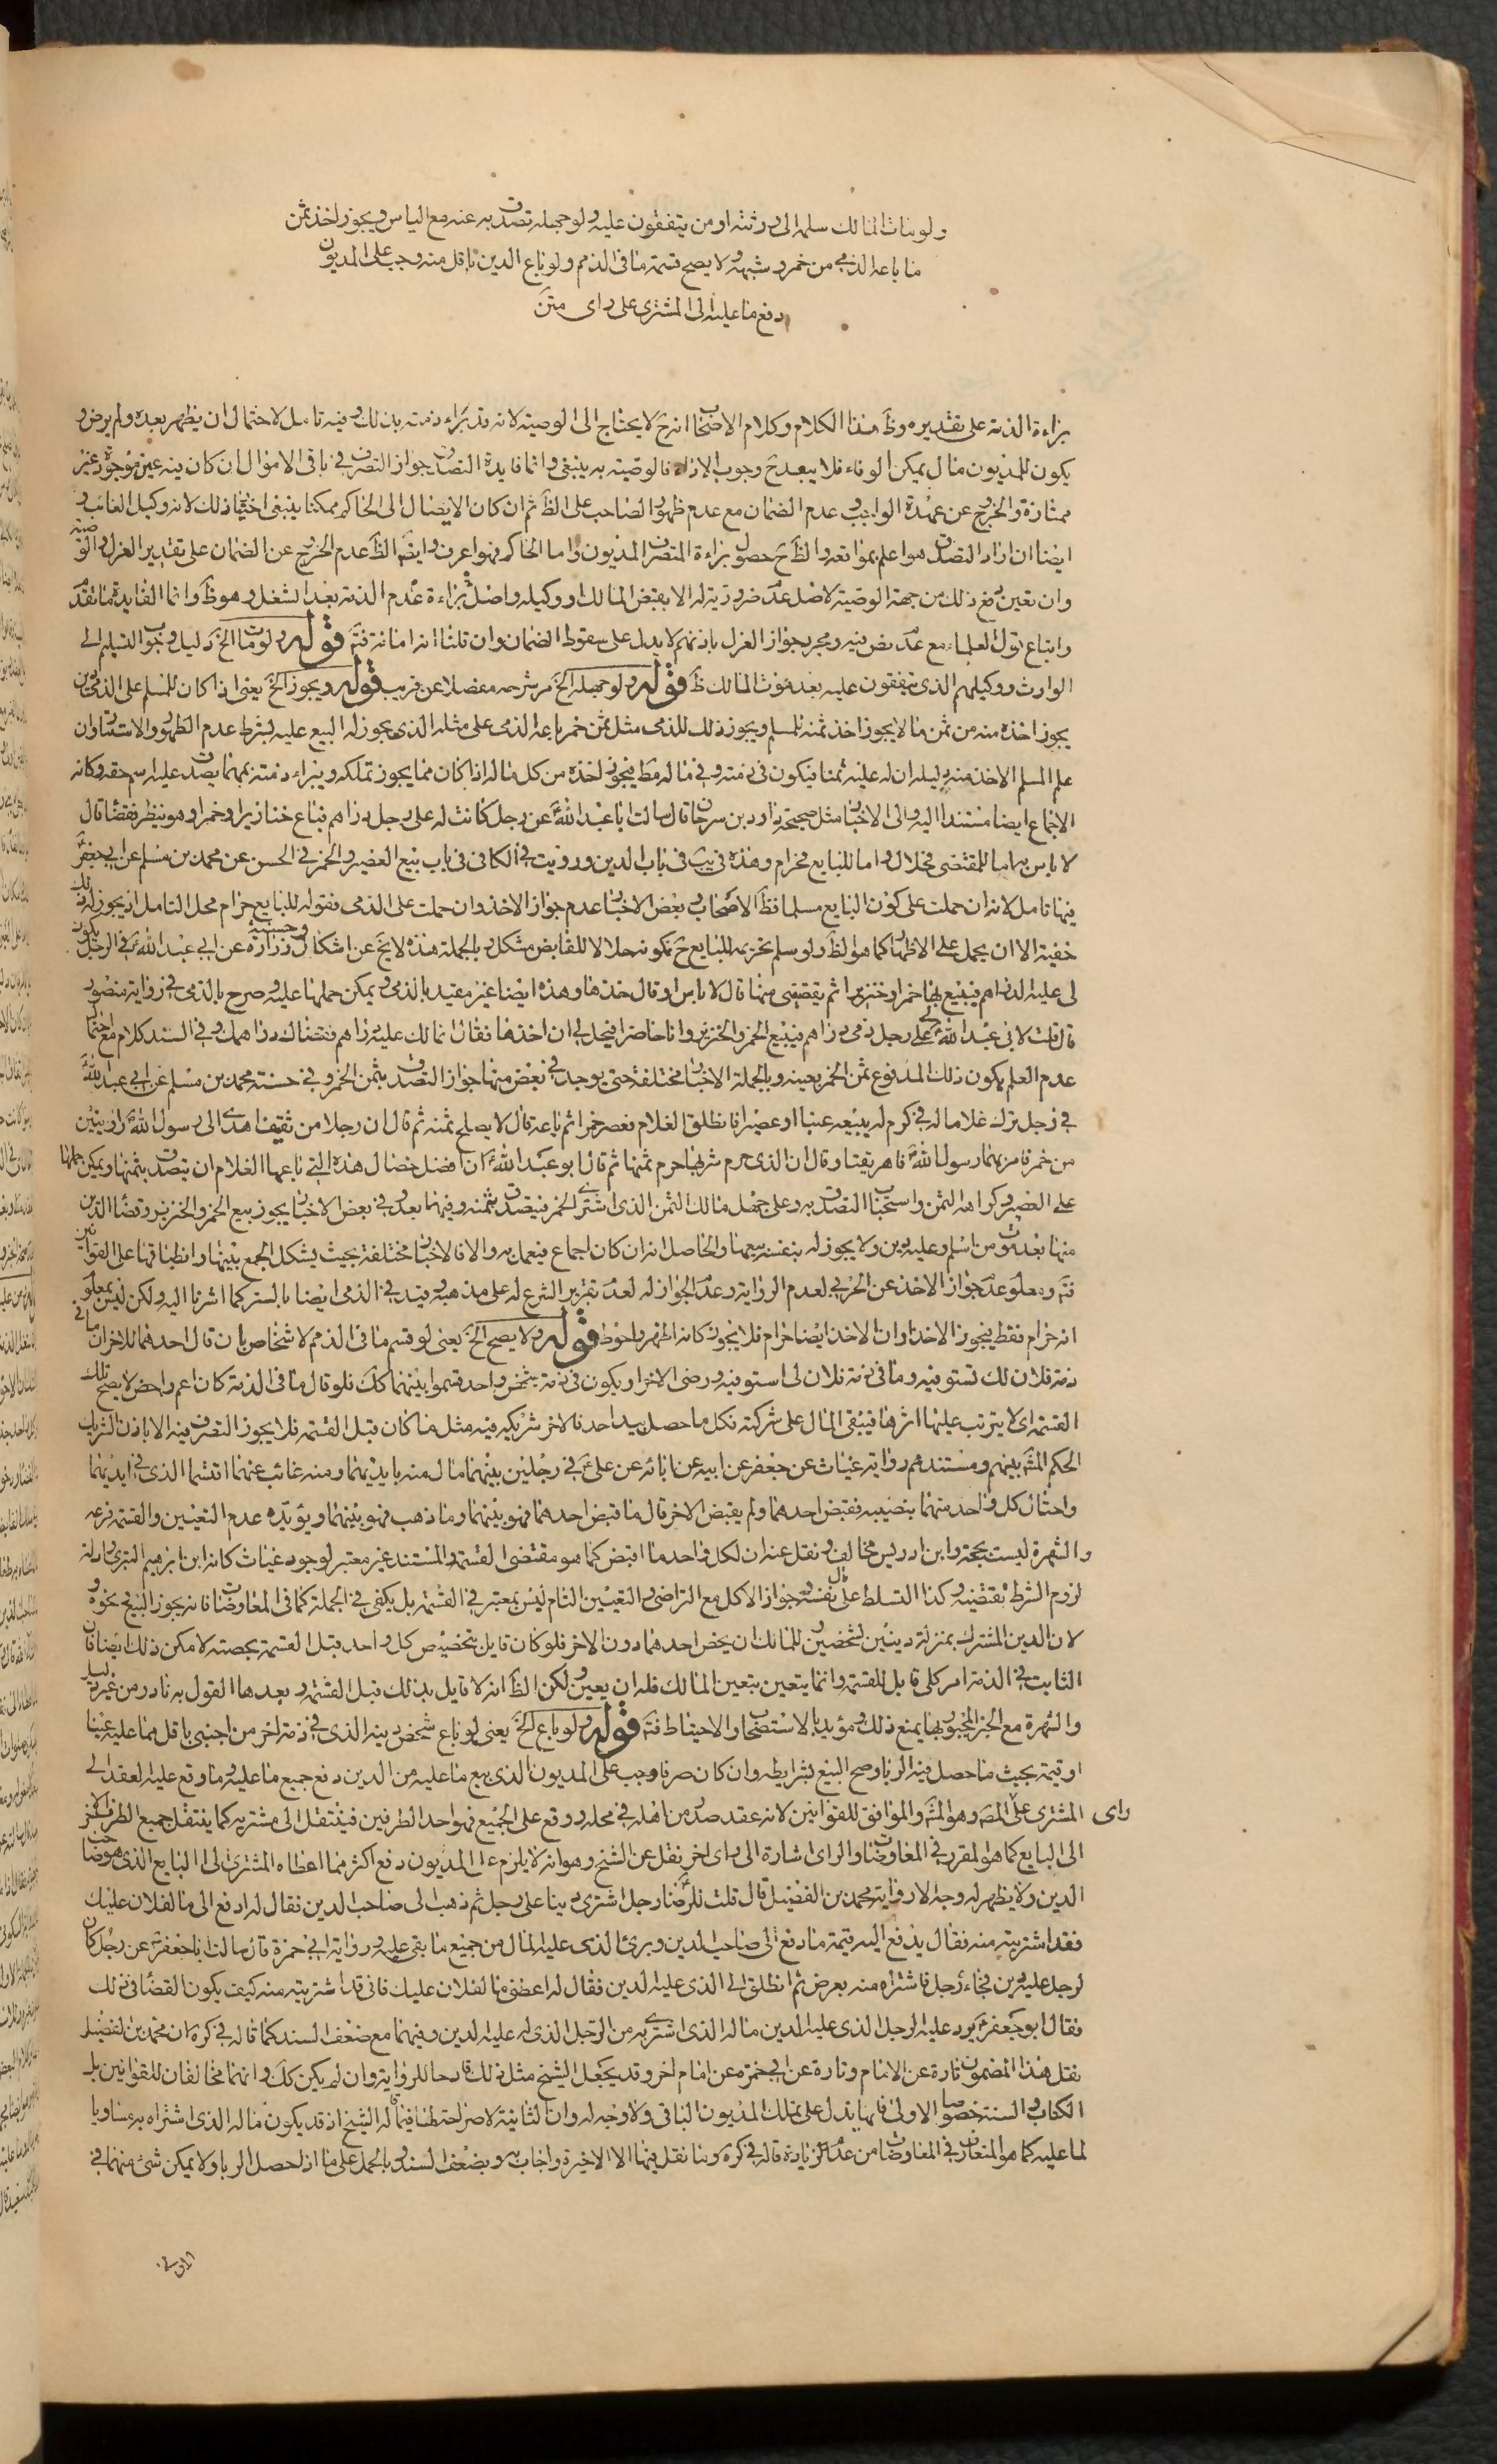 ولو مات المالك سلم الى ورثته او من يتفقون عليه ولو جهله تصدق به عنه مع الياس ويجوز اخذ ثمن
ما باعه الذمى من خمر وشبهه ولا يصح قسمة ما فى الذمم ولو باع الدين باقل منه وجب على المديون
دفع ما عليه الى المشترى على راى متن
براءة الذمة على تقديره وظ هذا الكلام وكلام الاصحاب انه ح لا يحتاج الى الوصية لانه قد براء ذمته بذلك وفيه تامل لاحتمال ان يظهر بعده ولم يرض و
يكون للمديون مال يمكن الوفاء فلا يبعد ح وجوب الاداء فالوصية به ينبغى وانما فايدة التصدق جواز التصرف فى باقى الاموال ان كان دينه عين موجودة غير
ممتازة والخروج عن عهدة الواجب وعدم الضمان مع عدم ظهور الصاحب على الظ ثم ان كان الايصال الى الحاكم ممكنا ينبغى اختيار ذلك لانه وكيل الغائب و
ايضا ان اراد التصدق هو اعلم بمواقعه والظ ح حصول براءة المتصرف المديون واما الحاكم فهو اعرف وايضا الظ عدم الخروج عن الضمان على تقدير العزل والوصية
وان تعين دفع ذلك من جهة الوصية لاصل عدم ضرورته له الا بقبض المالك او وكيله واصل عدم براءة الذمة بعد الشغل وهو ظ وانما الفايدة ما تقدم
واتباع قول العلماء مع عدم نص فيه ومجرد جواز العزل باذنهم لا يدل على سقوط الضمان وان قلنا انه امانة فتم قوله ولو مات الخ دليل وجوب التسليم الى
الوارث ووكيلهم الذى يتفقون عليه بعد موت المالك ظ قوله ولو جهله الخ مر شرحه مفصلا عن قريب قوله ويجوز الخ يعنى اذا كان للمسلم على الذمى دين
يجوز اخذه منه من ثمن ما لا يجوز اخذ ثمنه للمسلم ويجوز ذلك للذمى مثل ثمن خمر باعه الذمى على مثله الذى يجوز له البيع عليه بشرط عدم الظهور والاستتار وان
علم المسلم الاخذ منه دليله ان له عليه ثمنا فيكون فى ذمته وفى ماله مط فيجوز اخذه من كل ماله اذا كان مما يجوز تملكه ويبراء ذمته بمهما يصدق عليه اسم حقه وكانه
الاجماع ايضا مستندا اليه والى الاخبار مثل صحيحة داود بن سرحان قال سالت ابا عبد الله ع عن رجل كانت له على رجل دراهم فباع خنازير او خمرا وهو ينظر فقضاه قال
لا باس به اما للمقتضى فحلال واما للبايع فحرام وهذه فى يب فى باب الدين ورويت فى الكافى فى باب بيع العصير والخمر فى الحسن عن محمد بن مسلم عن ابى جعفر ع
فيها تامل لانه ان حملت على كون البايع مسلما فظ الاصحاب وبعض الاخبار عدم جواز الاخذ وان حملت على الذمى فقوله للبايع حرام محل التامل اذ يجوز له ذلك
خفية الا ان يحمل على الاظهار كما هو الظ ولو سلم تحريمه للبايع ح فكونه حلالا للقابض مشكل وبالجملة هذه لا يخ عن اشكال وحسنة زرارة عن ابى عبد الله ع فى الرجل يكون
لى عليه الدراهم فيبيع بها خمرا وخنزيرا ثم يقضينى منها قال لا باس او قال خذها وهذه ايضا غير مقيد بالذمى ويمكن حملها عليه وصرح بالذمى فى رواية منصور
قال قلت لابى عبد الله ع لى على رجل ذمى دراهم فيبيع الخمر والخنزير وانا حاضر افيحل لى ان اخذها فقال انما لك عليه دراهم فقضاك دراهمك وفى السند كلام مع احتمال
عدم العلم بكون ذلك المدفوع ثمن الخمر بعينه وبالجملة الاخبار مختلفة حتى يوجد فى بعض منها جواز التصدق بثمن الخمر وفى حسنة محمد بن مسلم عن ابى عبد الله ع
فى رجل ترك غلاما له فى كرم له يبيعه عنبا او عصيرا فانطلق الغلام فعصر خمرا ثم باعه قال لا يصلح ثمنه ثم قال ان رجلا من ثقيف اهدى الى رسول الله ص راويتين
من خمر فامر بهما رسول الله ص فاهريقتا وقال ان الذى حرم شربها حرم ثمنها ثم قال ابو عبد الله ع ان افضل خصال هذه التى باعها الغلام ان يتصدق بثمنها ويمكن حملها
على العصير وكراهة الثمن واستحباب التصدق به وعلى جهل مالك الثمن الذى اشترى الخمر فيتصدق بثمنه وفيهما بعد وفى بعض الاخبار يجوز بيع الخمر والخنزير وقضاء الدين
منها بعد موت من اسلم وعليه دين ولا يجوز له بنفسه بيعها والحاصل انه ان كان اجماع فيعمل به والا فالاخبار مختلفة بحيث يشكل الجمع بينها وانطباقها على القوانين
فتم ومعلوم عدم جواز الاخذ عن الحربى لعدم الرواية وعدم الجواز له لعدم تقرير الشرع له على مذهبه وقيد فى الذمى ايضا بالستر كما اشرنا اليه ولكن ليس بمعلوم
انه حرام فقط فيجوز الاخذ او ان الاخذ ايضا حرام فلا يجوز كانه اظهر واحوط قوله ولا يصح الخ يعنى لو قسم ما فى الذمم لاشخاص بان قال احدهما للاخر ان ما فى
ذمة فلان لك تستوفيه وما فى ذمة فلان لى استوفيه ورضى الاخر او يكون فى ذمة شخص واحد قسموا بينهما كك فلو قال ما فى الذمة كان اعم واخصر لا يصح تلك
القسمة اى لا يترتب عليها اثرها فيبقى المال على شركته فكل ما حصل بيد احد فالاخر شريكه فيه مثل ما كان قبل القسمة فلا يجوز التصرف فيه الا باذن الشريك
الحكم المش بينهم ومستندهم رواية غياث عن جعفر عن ابيه عن ابائه عن على ع فى رجلين بينهما مال منه بايديهما ومنه غائب عنهما اقتسما الذى فى ايديهما
واحتال كل واحد منهما بنصيبه فقبض احدهما ولم يقبض الاخر قال ما قبض احدهما فهو بينهما وما ذهب فهو بينهما ويؤيده عدم التعيين والقسمة فرعه
والشهرة ليست بحجة وابن ادريس مخالف ونقل عنه ان لكل واحد ما اقبض كما هو مقتضى القسمة والمستند غير معتبر لوجود غياث كانه ابن ابرهيم البترى وادلة
لزوم الشرط تقتضيه وكذا التسلط على مال نفسه وجواز الاكل مع التراضى والتعيين التام ليس بمعتبر فى القسمة بل يكفى فى الجملة كما فى المعاوضات فانه يجوز البيع ونحوه
لان الدين المشترك بمنزلة دينين لشخصين وللمالك ان يخص احدهما دون الاخر فلو كان قايل بتخصيص كل واحد قبل القسمة بحصته لامكن ذلك ايضا فان
الثابت فى الذمة امر كلى قابل للقسمة وانما يتعين بتعين المالك فله ان يعين ولكن الظ انه لا قايل بذلك قبل القسمة وبعدها القول به نادر من غير دليل
والشهرة مع الخبر المجبور بها يمنع ذلك ومؤيد بالاستصحاب والاحتياط فتم قوله ولو باع الخ يعنى لو باع شخص دينه الذى فى ذمة اخر من اجنبى باقل مما عليه عينا
او قيمة بحيث ما حصل فيه الربا وصح البيع بشرايطه وان كان صرفا وجب على المديون الذى بيع ما عليه من الدين دفع جميع ما عليه وما وقع عليه العقد الى
المشترى على راى المصَ وهو المش والموافق للقوانين لانه عقد صدر من اهله فى محله ووقع على الجميع فهو احد الطرفين فينتقل الى مشتريه كما ينتقل جميع الطرف الاخر
الى البايع كما هو المقرر فى المعاوضات والراى اشارة الى راى اخر نقل عن الشيخ وهو انه لا يلزم على المديون دفع اكثر مما اعطاه المشترى الى البايع الذى هو صاحب
الدين ولا يظهر له وجه الا رواية محمد بن الفضيل قال قلت للرضا ع رجل اشترى دينا على رجل ثم ذهب الى صاحب الدين فقال له ادفع الى ما لفلان عليك
فقد اشتريته منه فقال يدفع اليه قيمة ما دفع الى صاحب الدين وبرئ الذى عليه المال من جميع ما بقى عليه ورواية ابى حمزة قال سالت ابا جعفر ع عن رجل كان
لرجل عليه دين فجاء رجل فاشتراه منه بعرض ثم انطلق الى الذى عليه الدين فقال له اعطنى ما لفلان عليك فانى قد اشتريته منه كيف يكون القضاء فى ذلك
فقال ابو جعفر ع يرد عليه الرجل الذى عليه الدين ماله الذى اشترى به من الرجل الذى له عليه الدين وفيهما مع ضعف السند كما قاله فى كره ان محمد بن الفضيل
نقل هذا المضمون تارة عن الامام وتارة عن ابى حمزة عن امام اخر وقد يجعل الشيخ مثل ذلك قادحا للرواية وان لم يكن كك وانهما مخالفان للقوانين بل
الكتاب والسنة خصوصا الاولى فانها يدل على تملك المديون الباقى ولا وجه له وان الثانية لا صراحة لها فيما قاله الشيخ اذ قد يكون ماله الذى اشتراه به مساويا
لما عليه كما هو المتعارف فى المعاوضات من عدم الزيادة قاله فى كره وما نقل فيها الا الاخيرة واجاب به وبضعف السند وبالحمل على ما اذا حصل الربا ولا يمكن شئ منهما فى